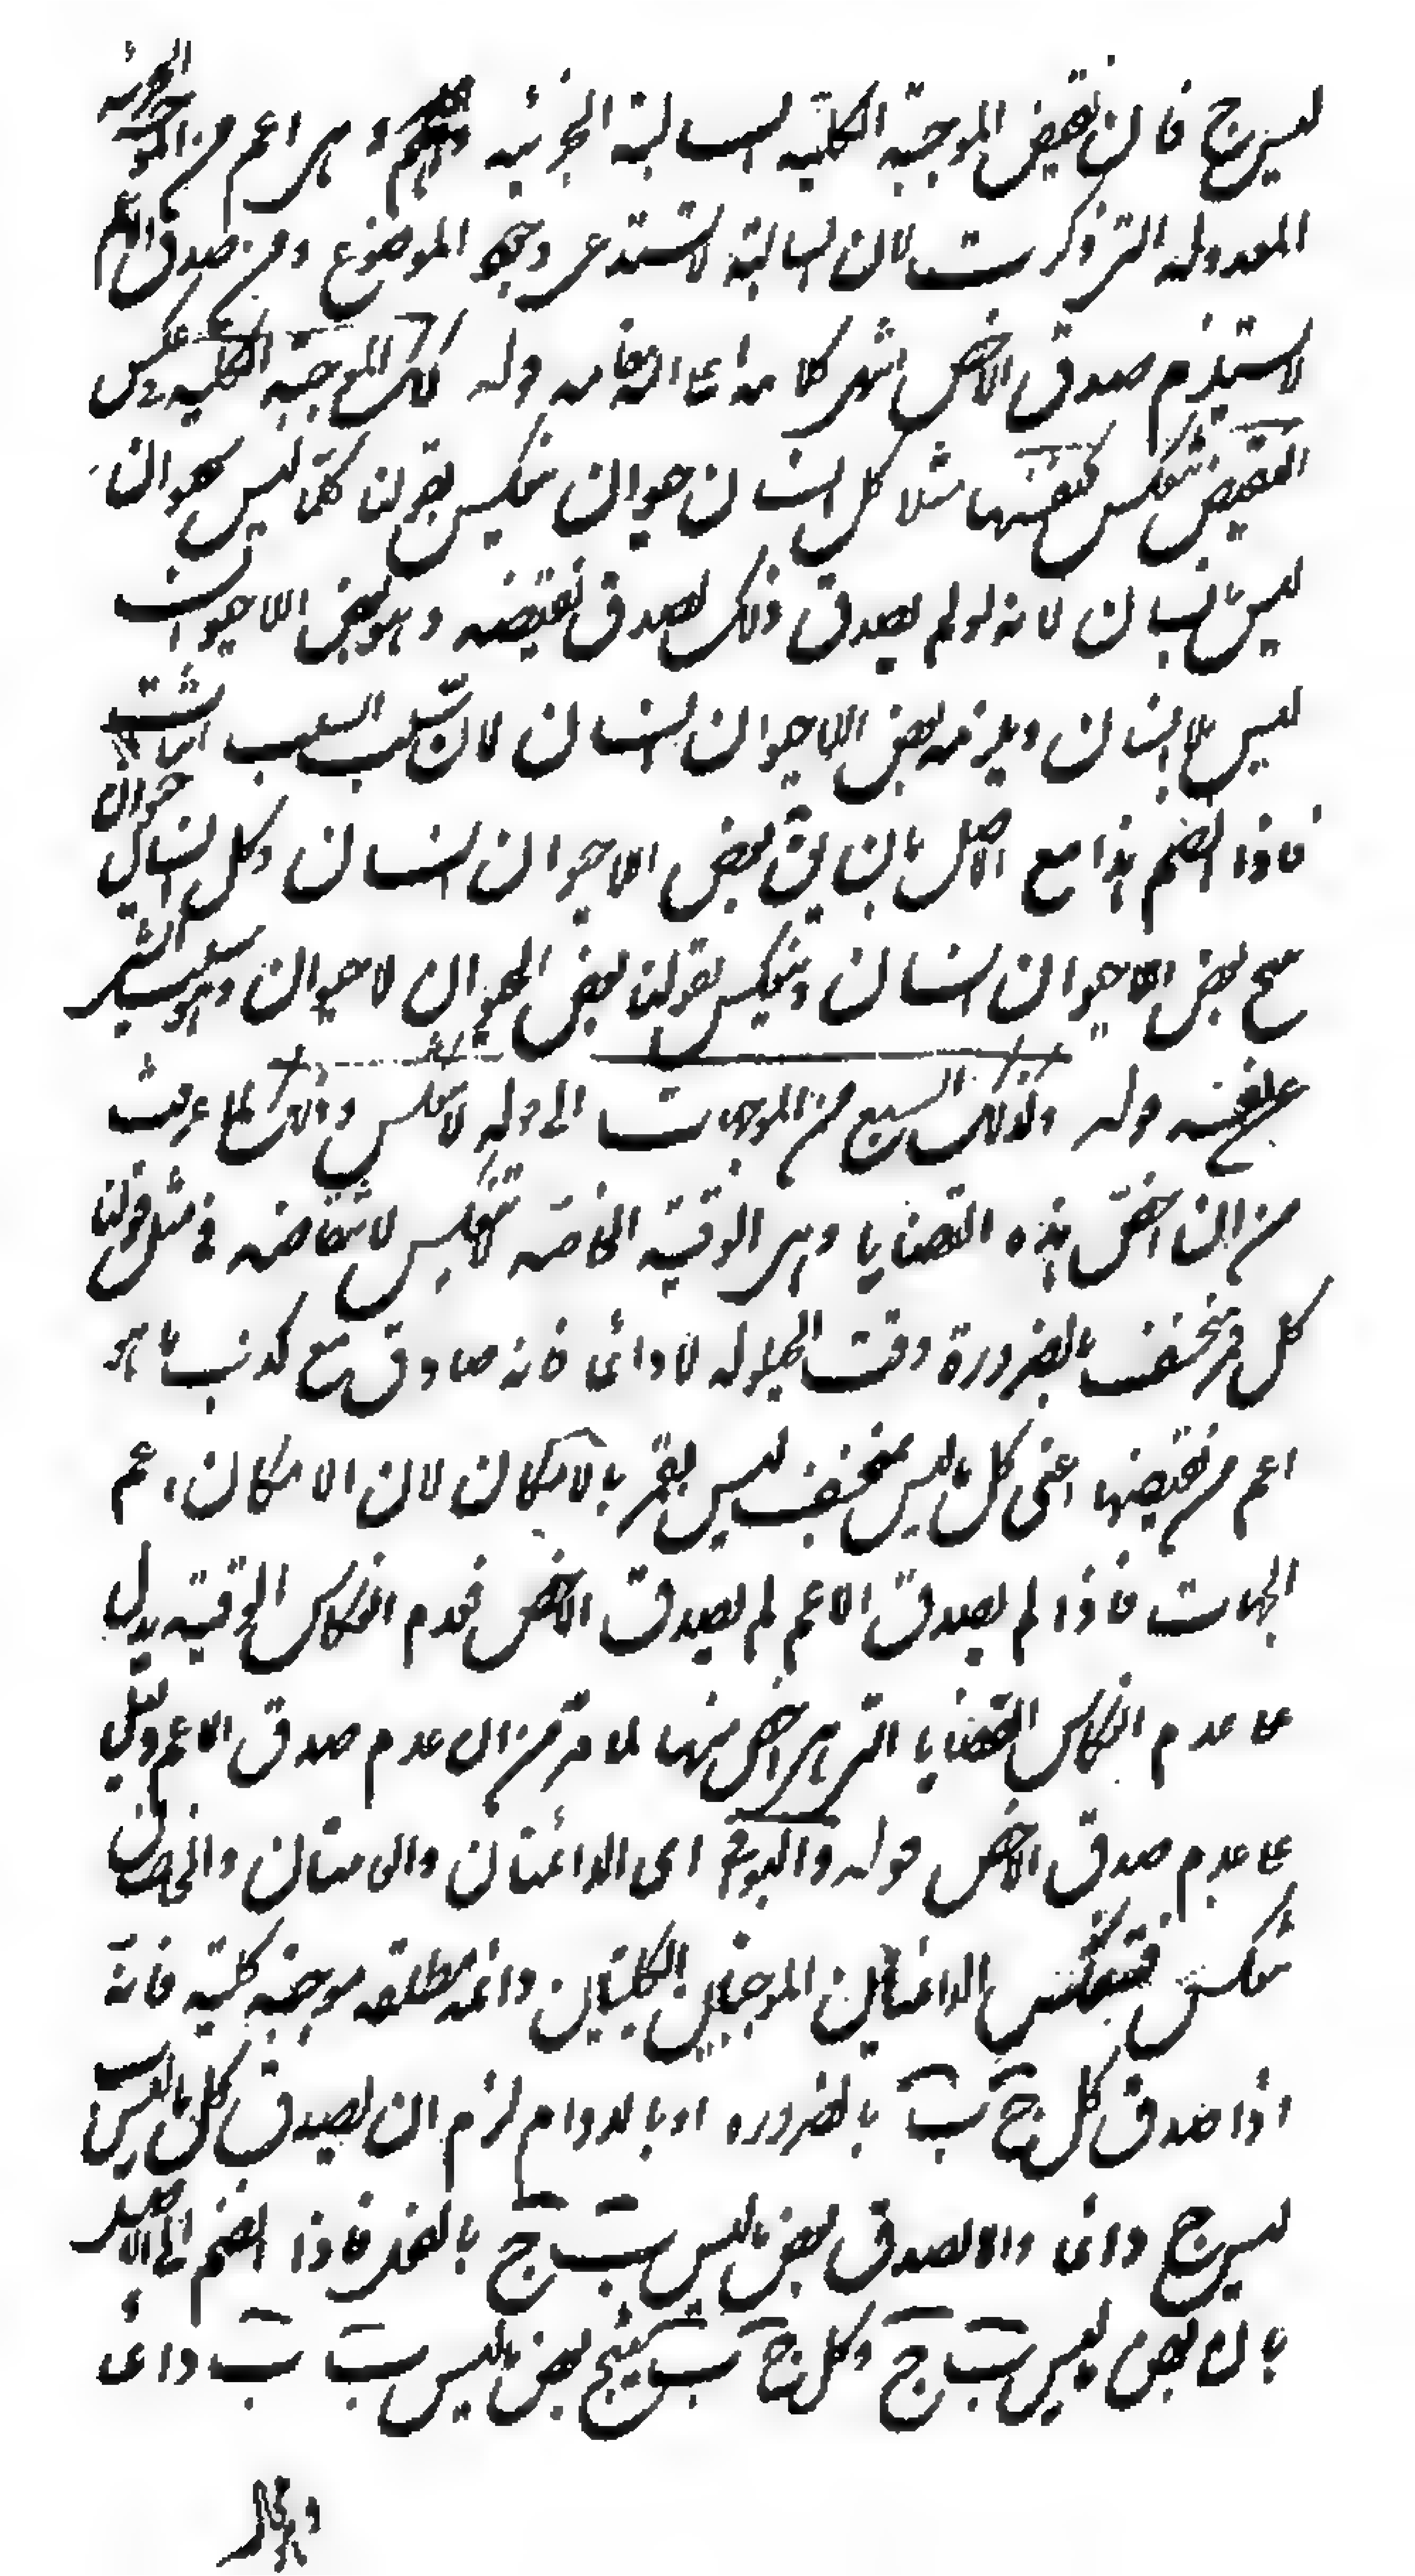 ليس ج فان نقيض الموجبة الكلية السالبة الجزئيه وهى اعم من الموجبة الجزئيه
المعدوله التى ذكرت لان السالبة لا تستدعى وجود الموضوع ومن صدق الاعم
لا يستلزم صدق الاخص قوله كذلك الموجبة الكليه فى عكس
النقيض تنعكس كنفسها مثلا كل انسان حيوان ينعكس بقولنا كلما ليس بحيوان
ليس بانسان لانه لو لم يصدق ذلك لصدق نقيضه وهو بعض اللاحيوان
ليس بلا انسان ويلزمه بعض اللاحيوان انسان لان سلب السلب اثبات
فاذا انضم هذا مع الاصل بان يق بعض اللاحيوان انسان وكل انسان حيوان
ينتج بعض اللاحيوان انسان وينعكس بقولنا بعض الحيوان لاحيوان وهو سلب الشىء
عن نفسه قوله وكذلك السبع من الموجهات الى قوله لا تنعكس وذلك لما عرفت
من ان اخص هذه القضايا وهى الوقتية الخاصة لا تنعكس لانتقاضه فى مثل قولنا
كل قمر منخسف بالضرورة وقت الحيلوله لا دائما فانه صادق مع كذب ما هو
اعم من نقيضها اعنى كل ما ليس بمنخسف ليس بقمر بالامكان لان الامكان اعم
الجهات فاذا لم يصدق الاعم لم يصدق الاخص فعدم انعكاس الوقتيه يدل
على عدم انعكاس القضايا التى هى اخص منها لما مر من ان عدم صدق الاعم دليل
على عدم صدق الاخص قوله والبواقى اى الدائمتان والعامتان والخاصتان
تنعكس فتنعكس الدائمتان الموجبتين الكليتين دائمه مطلقه موجبة كلية فانه
اذا صدق كل ج ب بالضروره او بالدوام لزم ان يصدق كل ما ليس ب
ليس ج دائما والا لصدق بعض ما ليس ب ج بالفعل فاذا انضم الى الاصل
بان بعض ليس ب ج وكل ج ب ينتج بعض ما ليس ب ب دائما